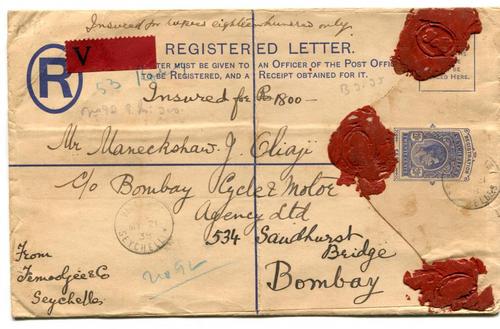 Insured for rupees eighteen hundred only
V
R
REGISTERED LETTER.
LETTER MUST BE GIVEN TO AN OFFICER OF THE POST OFFICE
TO BE REGISTERED, AND A RECEIPT OBTAINED FOR IT.
53
Insured for Rs 1800-
Mr Maneckshaw J. Oliaji
C/o Bombay Cycle & Motor
Agency Ltd
534 Sandhurst
Bridge
Bombay
REGISTRATION
SEYCHELLES
From
Temooljee & Co
Seychelles
No 92